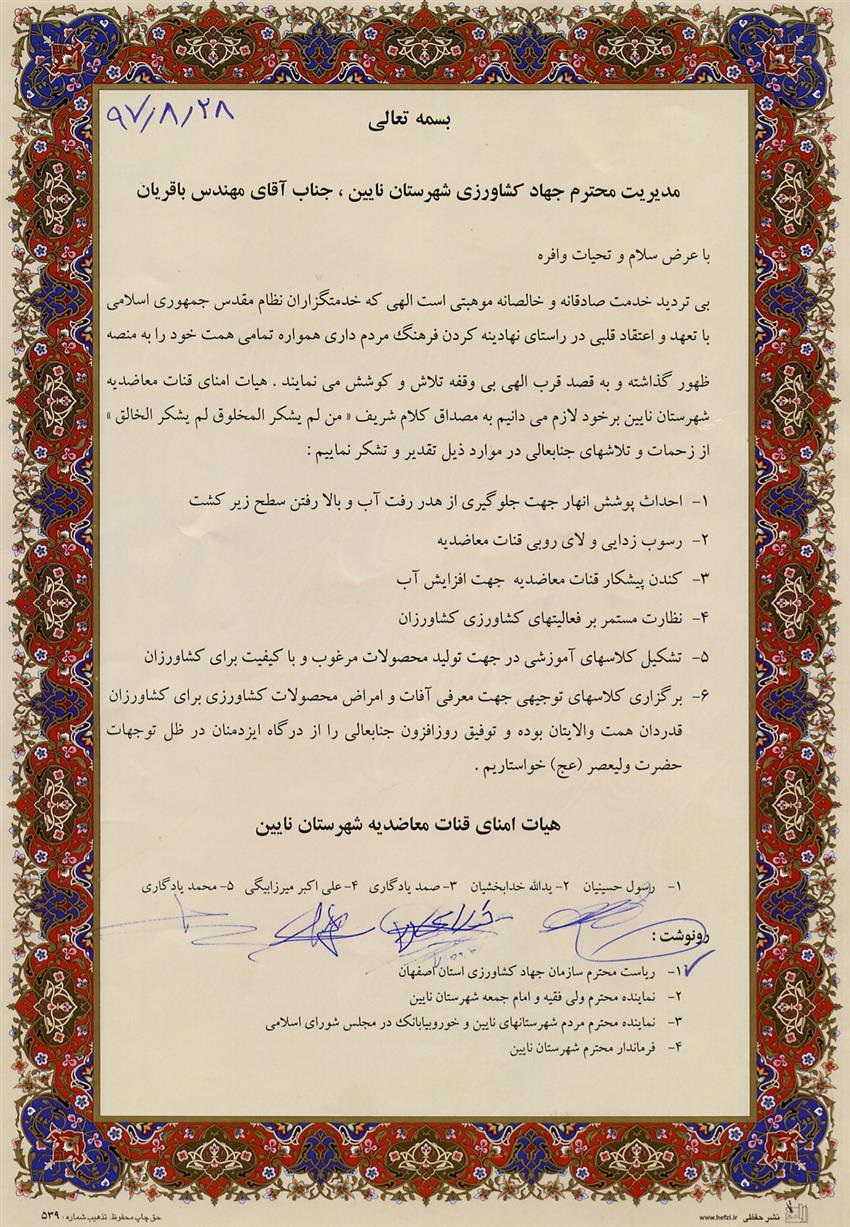 ۹۷/۸/۲۸
بسمه تعالی
مدیریت محترم جهاد کشاورزی شهرستان نایین ، جناب آقای مهندس باقریان
با عرض سلام و تحیات وافره
بی تردید خدمت صادقانه و خالصانه موهبتی است الهی که خدمتگزاران نظام مقدس جمهوری اسلامی
با تعهد و اعتقاد قلبی در راستای نهادینه کردن فرهنگ مردم داری همواره تمامی همت خود را به منصه
ظهور گذاشته و به قصد قرب الهی بی وقفه تلاش و کوشش می نمایند . هیات امنای قنات معاضدیه
شهرستان نایین برخود لازم می دانیم به مصداق کلام شریف « من لم یشکر المخلوق لم یشکر الخالق »
از زحمات و تلاشهای جنابعالی در موارد ذیل تقدیر و تشکر نماییم :
۱- احداث پوشش انهار جهت جلوگیری از هدر رفت آب و بالا رفتن سطح زیر کشت
۲- رسوب زدایی و لای روبی قنات معاضدیه
۳- کندن پیشکار قنات معاضدیه جهت افزایش آب
۴- نظارت مستمر بر فعالیتهای کشاورزی کشاورزان
۵- تشکیل کلاسهای آموزشی در جهت تولید محصولات مرغوب و با کیفیت برای کشاورزان
۶- برگزاری کلاسهای توجیهی جهت معرفی آفات و امراض محصولات کشاورزی برای کشاورزان
قدردان همت والایتان بوده و توفیق روزافزون جنابعالی را از درگاه ایزدمنان در ظل توجهات
حضرت ولیعصر (عج) خواستاریم .
هیات امنای قنات معاضدیه شهرستان نایین
۱- رسول حسینیان ۲- یدالله خدابخشیان ۳- صمد یادگاری ۴- علی اکبر میرزابیگی ۵- محمد یادگاری
رونوشت :
۱- ریاست محترم سازمان جهاد کشاورزی استان اصفهان
۲- نماینده محترم ولی فقیه و امام جمعه شهرستان نایین
۳- نماینده محترم مردم شهرستانهای نایین و خوروبیابانک در مجلس شورای اسلامی
۴- فرماندار محترم شهرستان نایین
نشر حفظی www.hefzi.ir
حق چاپ محفوظ. تذهیب شماره : ۵۳۹